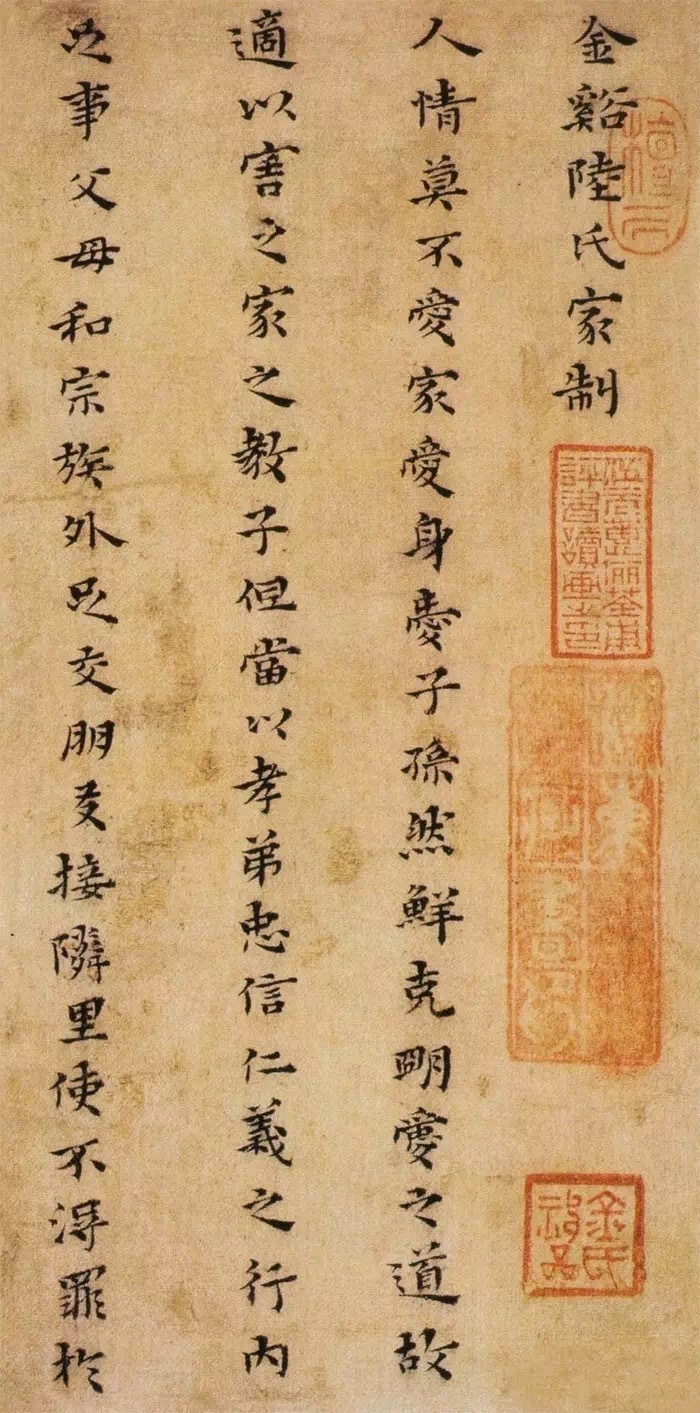 金谿陸氏家制
伍元蕙儷荃甫
評書讀畫之印
人情莫不愛家愛身愛子孫然鮮克明愛之道故
適以害之家之教子但當以孝弟忠信仁義之行内
足事父母和宗族外足交朋友接隣里使不得罪於